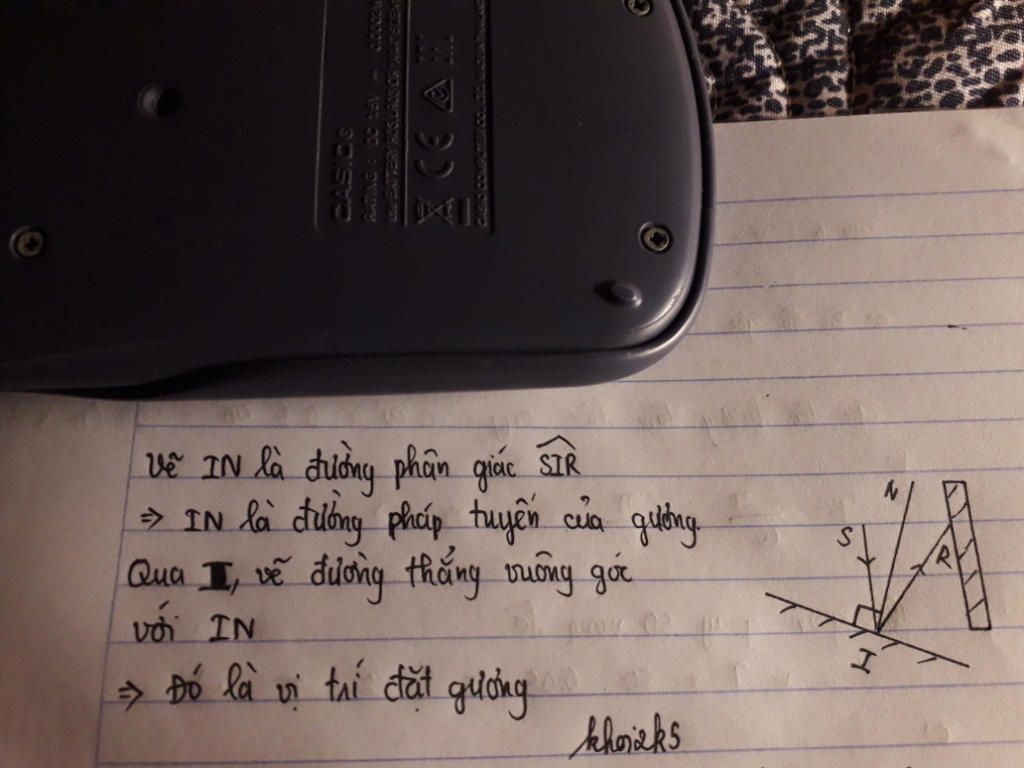 CASIO®
CE
Vẽ IN là đường phân giác SIR
=> IN là đường pháp tuyến của gương.
Qua I, vẽ đường thẳng vuông góc
với IN
=> Đó là vị trí đặt gương
khoi2k5
N
S
R
I